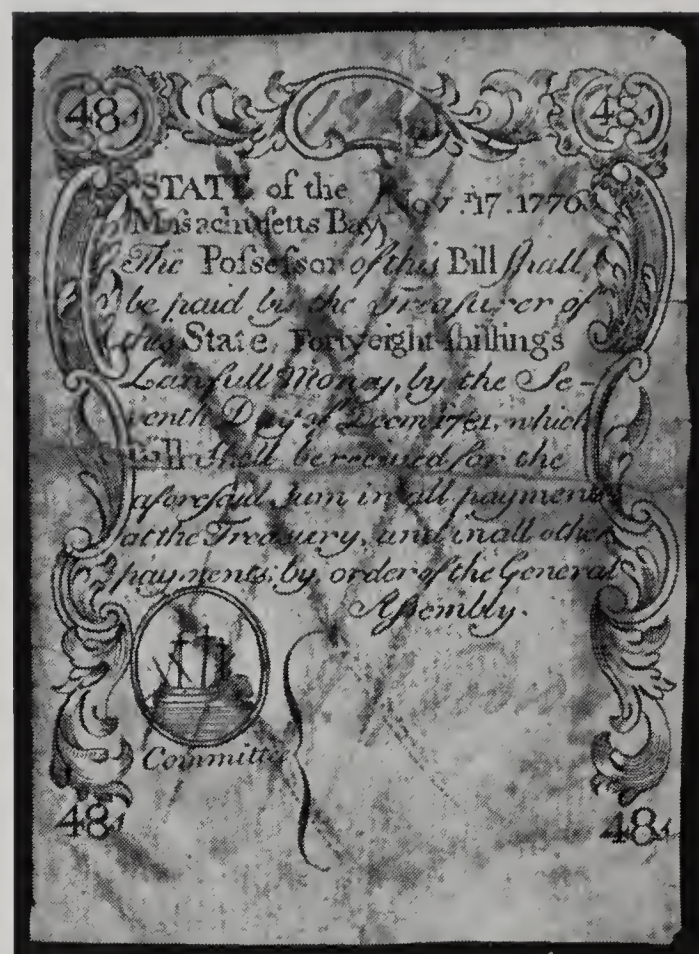 48s 48s
STATE of the Nov.r 17. 1776
Massachusetts Bay
The Poſseſsor of this Bill ſhall
be paid by the Treaſurer of
this State Fortyeight ſhillings
Lawfull Money, by the Se-
venth Day of Decm 1781, which
Bill ſhall be received for the
aforeſaid Sum in all payments
at the Treaſury, and in all other
payments, by order of the General
Aſsembly.
Committee
48s 48s